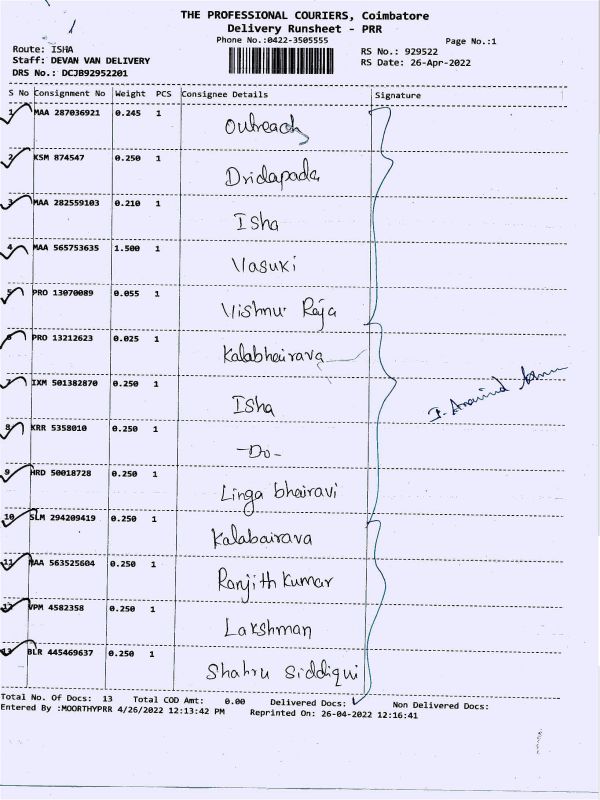 THE PROFESSIONAL COURIERS, Coimbatore
Delivery Runsheet - PRR
Phone No.:0422-3505555
Page No.:1
Route: ISHA
Staff: DEVAN VAN DELIVERY
DRS No.: DCJB92952201
RS No.: 929522
RS Date: 26-Apr-2022
S No Consignment No Weight PCS Consignee Details Signature
1 MAA 287036921 0.245 1 Outreach
2 KSM 874547 0.250 1 Dridapada
3 MAA 282559103 0.210 1 Isha
4 MAA 565753635 1.500 1 Vasuki
5 PRO 13070089 0.055 1 Vishnu Raja
6 PRO 13212623 0.025 1 Kalabhairava
7 IXM 501382870 0.250 1 Isha
8 KRR 5358010 0.250 1 -Do-
9 HRD 50018728 0.250 1 Linga bhairavi
10 SLM 294209419 0.250 1 Kalabairava
11 MAA 563525604 0.250 1 Ranjith Kumar
12 VPM 4582358 0.250 1 Lakshman
13 BLR 445469637 0.250 1 Shahru Siddiqui
Total No. Of Docs: 13 Total COD Amt: 0.00 Delivered Docs: Non Delivered Docs:
Entered By :MOORTHYPRR 4/26/2022 12:13:42 PM Reprinted On: 26-04-2022 12:16:41